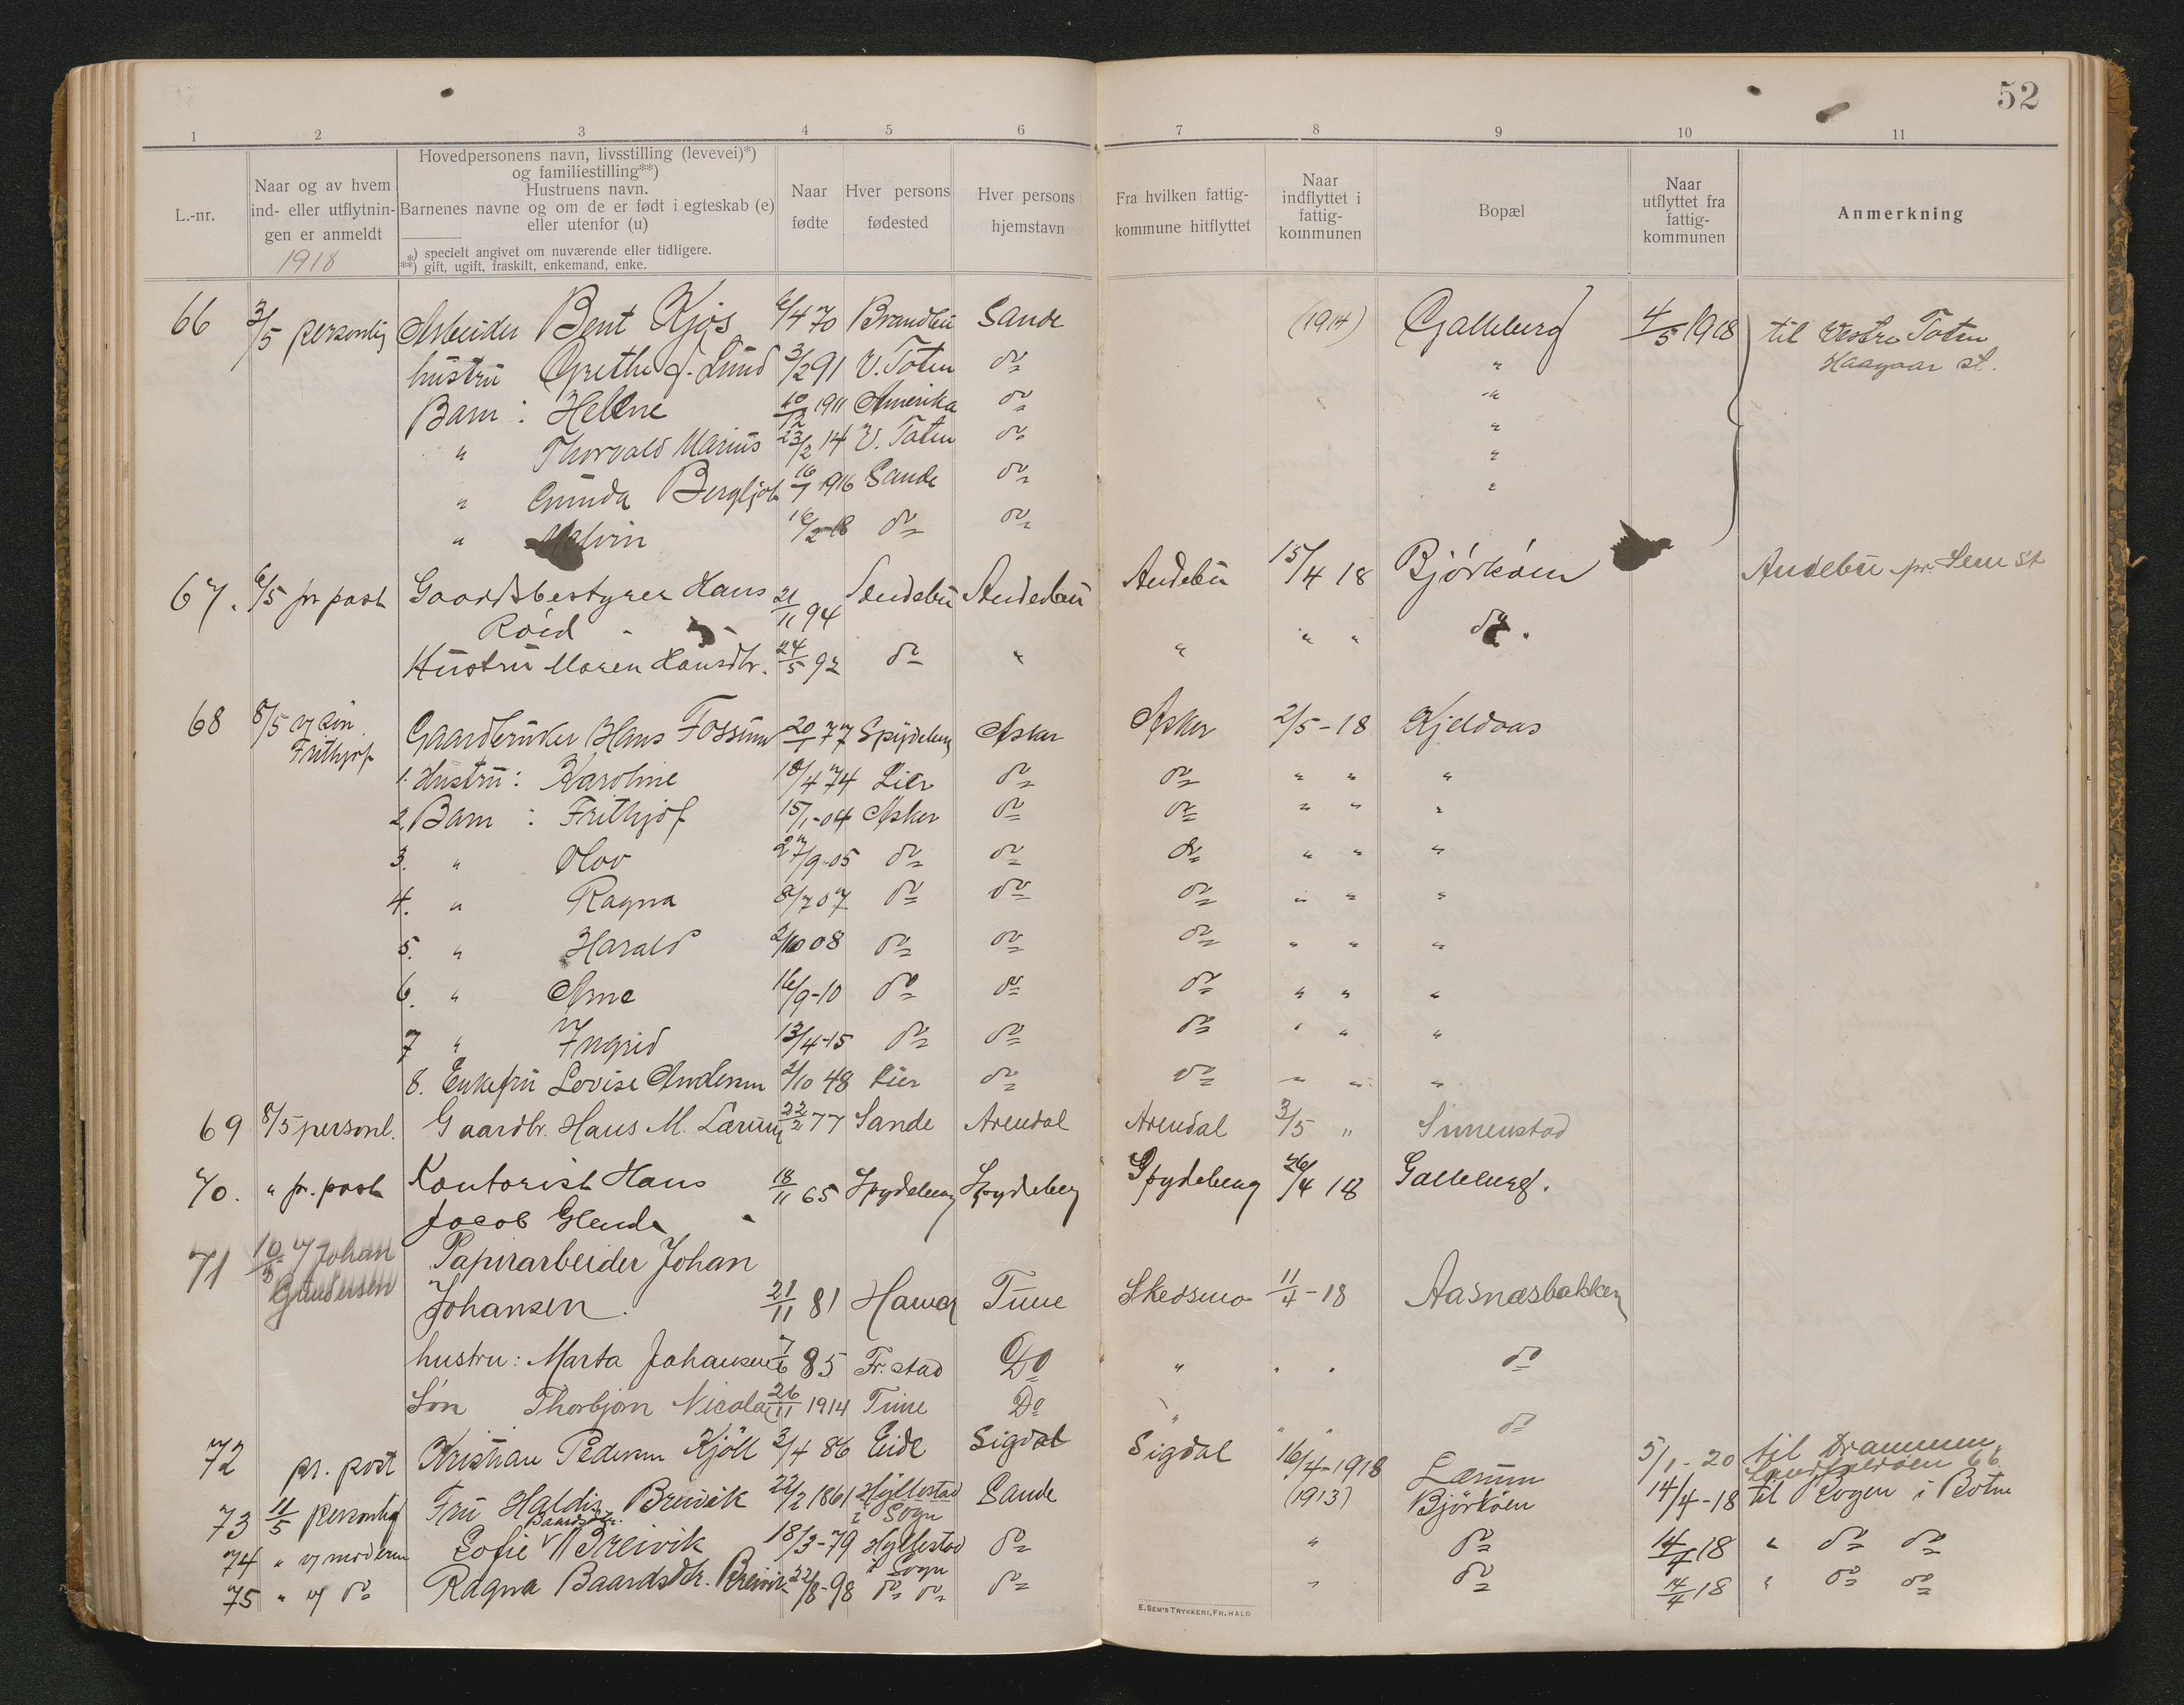 52
1 2 3 4 5 6 7 8 9 10 11
L.-nr.
Naar og av hvem
ind- eller utflytnin-
gen er anmeldt
1918
Hovedpersonens navn, livsstilling (levevei)*)
og familiestilling**)
Hustruens navn.
Barnenes navne og om de er født i egteskab (e)
eller utenfor (u)
*) specielt angivet om nuværende eller tidligere.
**) gift, ugift, fraskilt, enkemand, enke.
Naar
fødte
Hver persons
fødested
Hver persons
hjemstavn
Fra hvilken fattig-
kommune hitflyttet
Naar
indflyttet i
fattig-
kommunen
Bopæl
Naar
utflyttet fra
fattig-
kommunen
Anmerkning
66 3/5 personlig Arbeider Bent Kjøs 6/4 70 Brandbu Sande (1914) Galleberg 4/5 1918 til Vestre Toten
Haagaar st.
hustru Grethe f. Lund 3/2 91 V. Toten do "
Barn : Hellne 10/12 1911 Amerika do "
" Thorvald Marius 23/2 14 V. Toten do "
" Gunda Bergljot 16/1 1916 Sande do "
" Melvin 16/2-18 do do "
67. 6/5 pr post Gaardsbestyrer Hans 21/11 94 Andebu Andebu Andebu 15/4 18 Bjørkøen Andebu pr. Sem st
Røed
Hustru Maren Hansdtr. 24/5 92 do " " " " do.
68 8/5 v/ søn
Frithjof
Gaardbruker Hans Fossum 20/1 77 Spydeberg Asker Asker 2/5-18 Kjeldaas
1. Hustru : Karoline 18/4 74 Lier do do " " "
2. Barn : Frithjof 15/1-04 Asker do do " " "
3. " Olav 27/9-05 do do do " " "
4. " Ragna 8/7 07 do do do " " "
5. " Harald 2/10 08 do do do " " "
6. " Arne 16/9-10 do do do " " "
7 " Ingrid 13/4-15 do do do " " "
8. Enkefru Lovise Andersen 2/10 48 Lier do do " " "
69 8/5 personl. Gaardbr. Hans M. Lærum 22/2 77 Sande Arendal Arendal 3/5 " Simenstad
70. " pr. post Kontorist Hans 18/11 65 Spydeberg Spydeberg Spydeberg 26/4 18 Galleberg.
Jacob
71 v/ Johan
Gundersen
Papirarbeider Johan
Johansen. 21/11 81 Tune Skedsmo 11/4-18 Aasnæsbakken
hustru: Marta Johansen 7/6 85 Fr.stad Do " . . do
Søn Thorbjørn Nicolai 26/11 1914 Tune Do " " " do
72 pr. post Kristian Pedersen Kjöll 3/4 86 Eide Sigdal Sigdal 16/4-1918 Lærum 5/1-20 til Drammen
66.
73 11/5 personlig Fru Haldis Breivik 22/2 1861 Hyllestad Sande (1913) Bjørkøen 14/4-18 til Kogen i Botne
i Sogn
Baardsdtr.
74 " v/ moderen Sofie Breivik 18/3-79 Hyllestad do " do 14/4 18 " do do
i Sogn
75 " v/ do Ragna Baardsdtr. Breivik 22/8-98 do do do " do 14/4 18 " do do
E. SEM'S TRYKKERI, FR.HALD